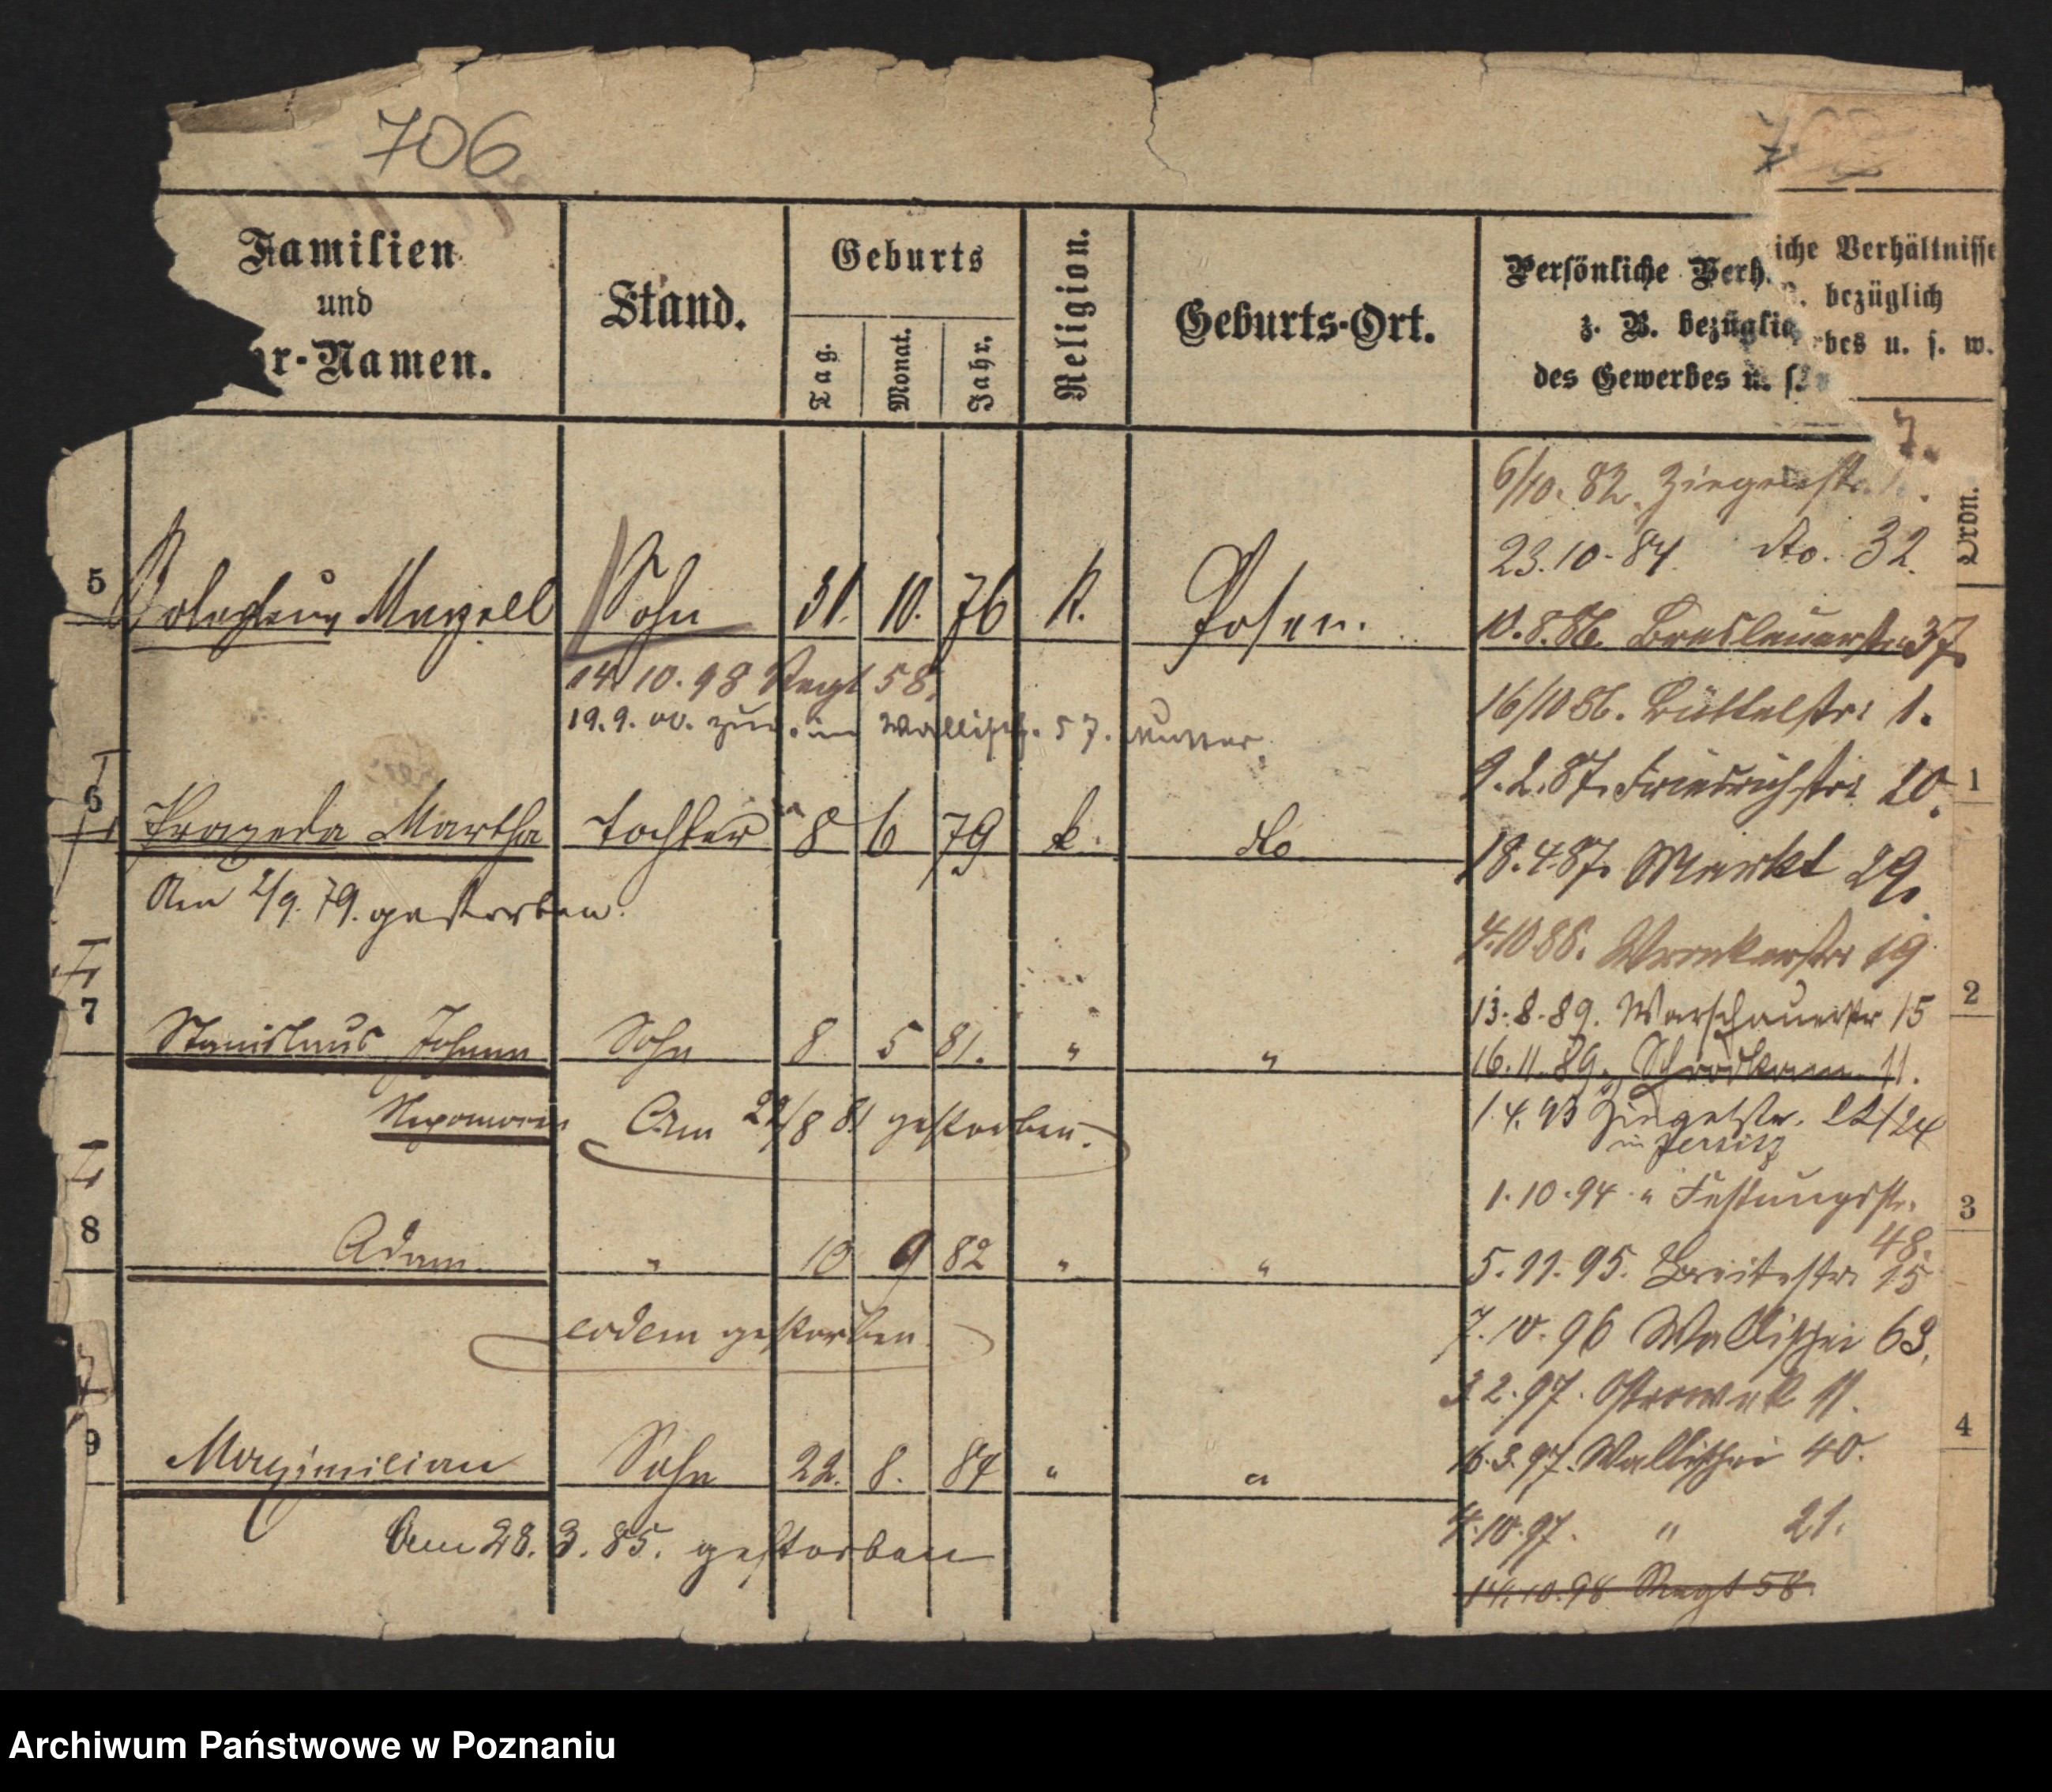 706
Familien
und
r-Namen.
Stand.
Geburts
Tag.
Monat.
Jahr.
Religion.
Geburts-Ort.
Persönliche Verh
z. B. bezüglic
des Gewerbes u. s.
iche Verhältnisse
B. bezüglich
rbes u. s. w.
7.
Ordn.
6/10. 82. Ziegenstr.
23.10.84. do. 32.
5 Boleslaus Marzell Sohn 31. 10. 76 k. Posen.
10.8.86. Breslauerstr. 37.
14.10.98 Regt 58,
19.9.00. Wallisch. 57.
16/10 86. Büttelstr: 1.
9.2.87. Friedrichstr: 20.
6 Praxeda Martha Tochter 8 6 79 k. do
18.4.87. Markt 29.
Am 2/9. 79. gestorben.
4.10 88. Wronkerstr: 19
13.8.89. Warschauerstr 15
7 Stanislaus Johann Sohn 8 5 81. " "
16.11.89. Schrodkamm. 11.
Nepomocen Am 22/8 81 gestorben.
1.4.93 Ziegelstr. 22/24
in Jersitz
1.10.94 " Festungsstr.
48.
8 Adam. " 10 9 82 " "
5.11.95. Breitestr. 15
eodem gestorben
7.10.96 Wallischei 63.
3.2.97. Ostrowek 11.
9 Maximilian Sohn 22. 8. 84 " "
16.3.97. Wallischei 40.
Am 28. 3. 85. gestorben
4.10.97. " 21.
14.10.98 Regt 58.
1
2
3
4
Archiwum Państwowe w Poznaniu